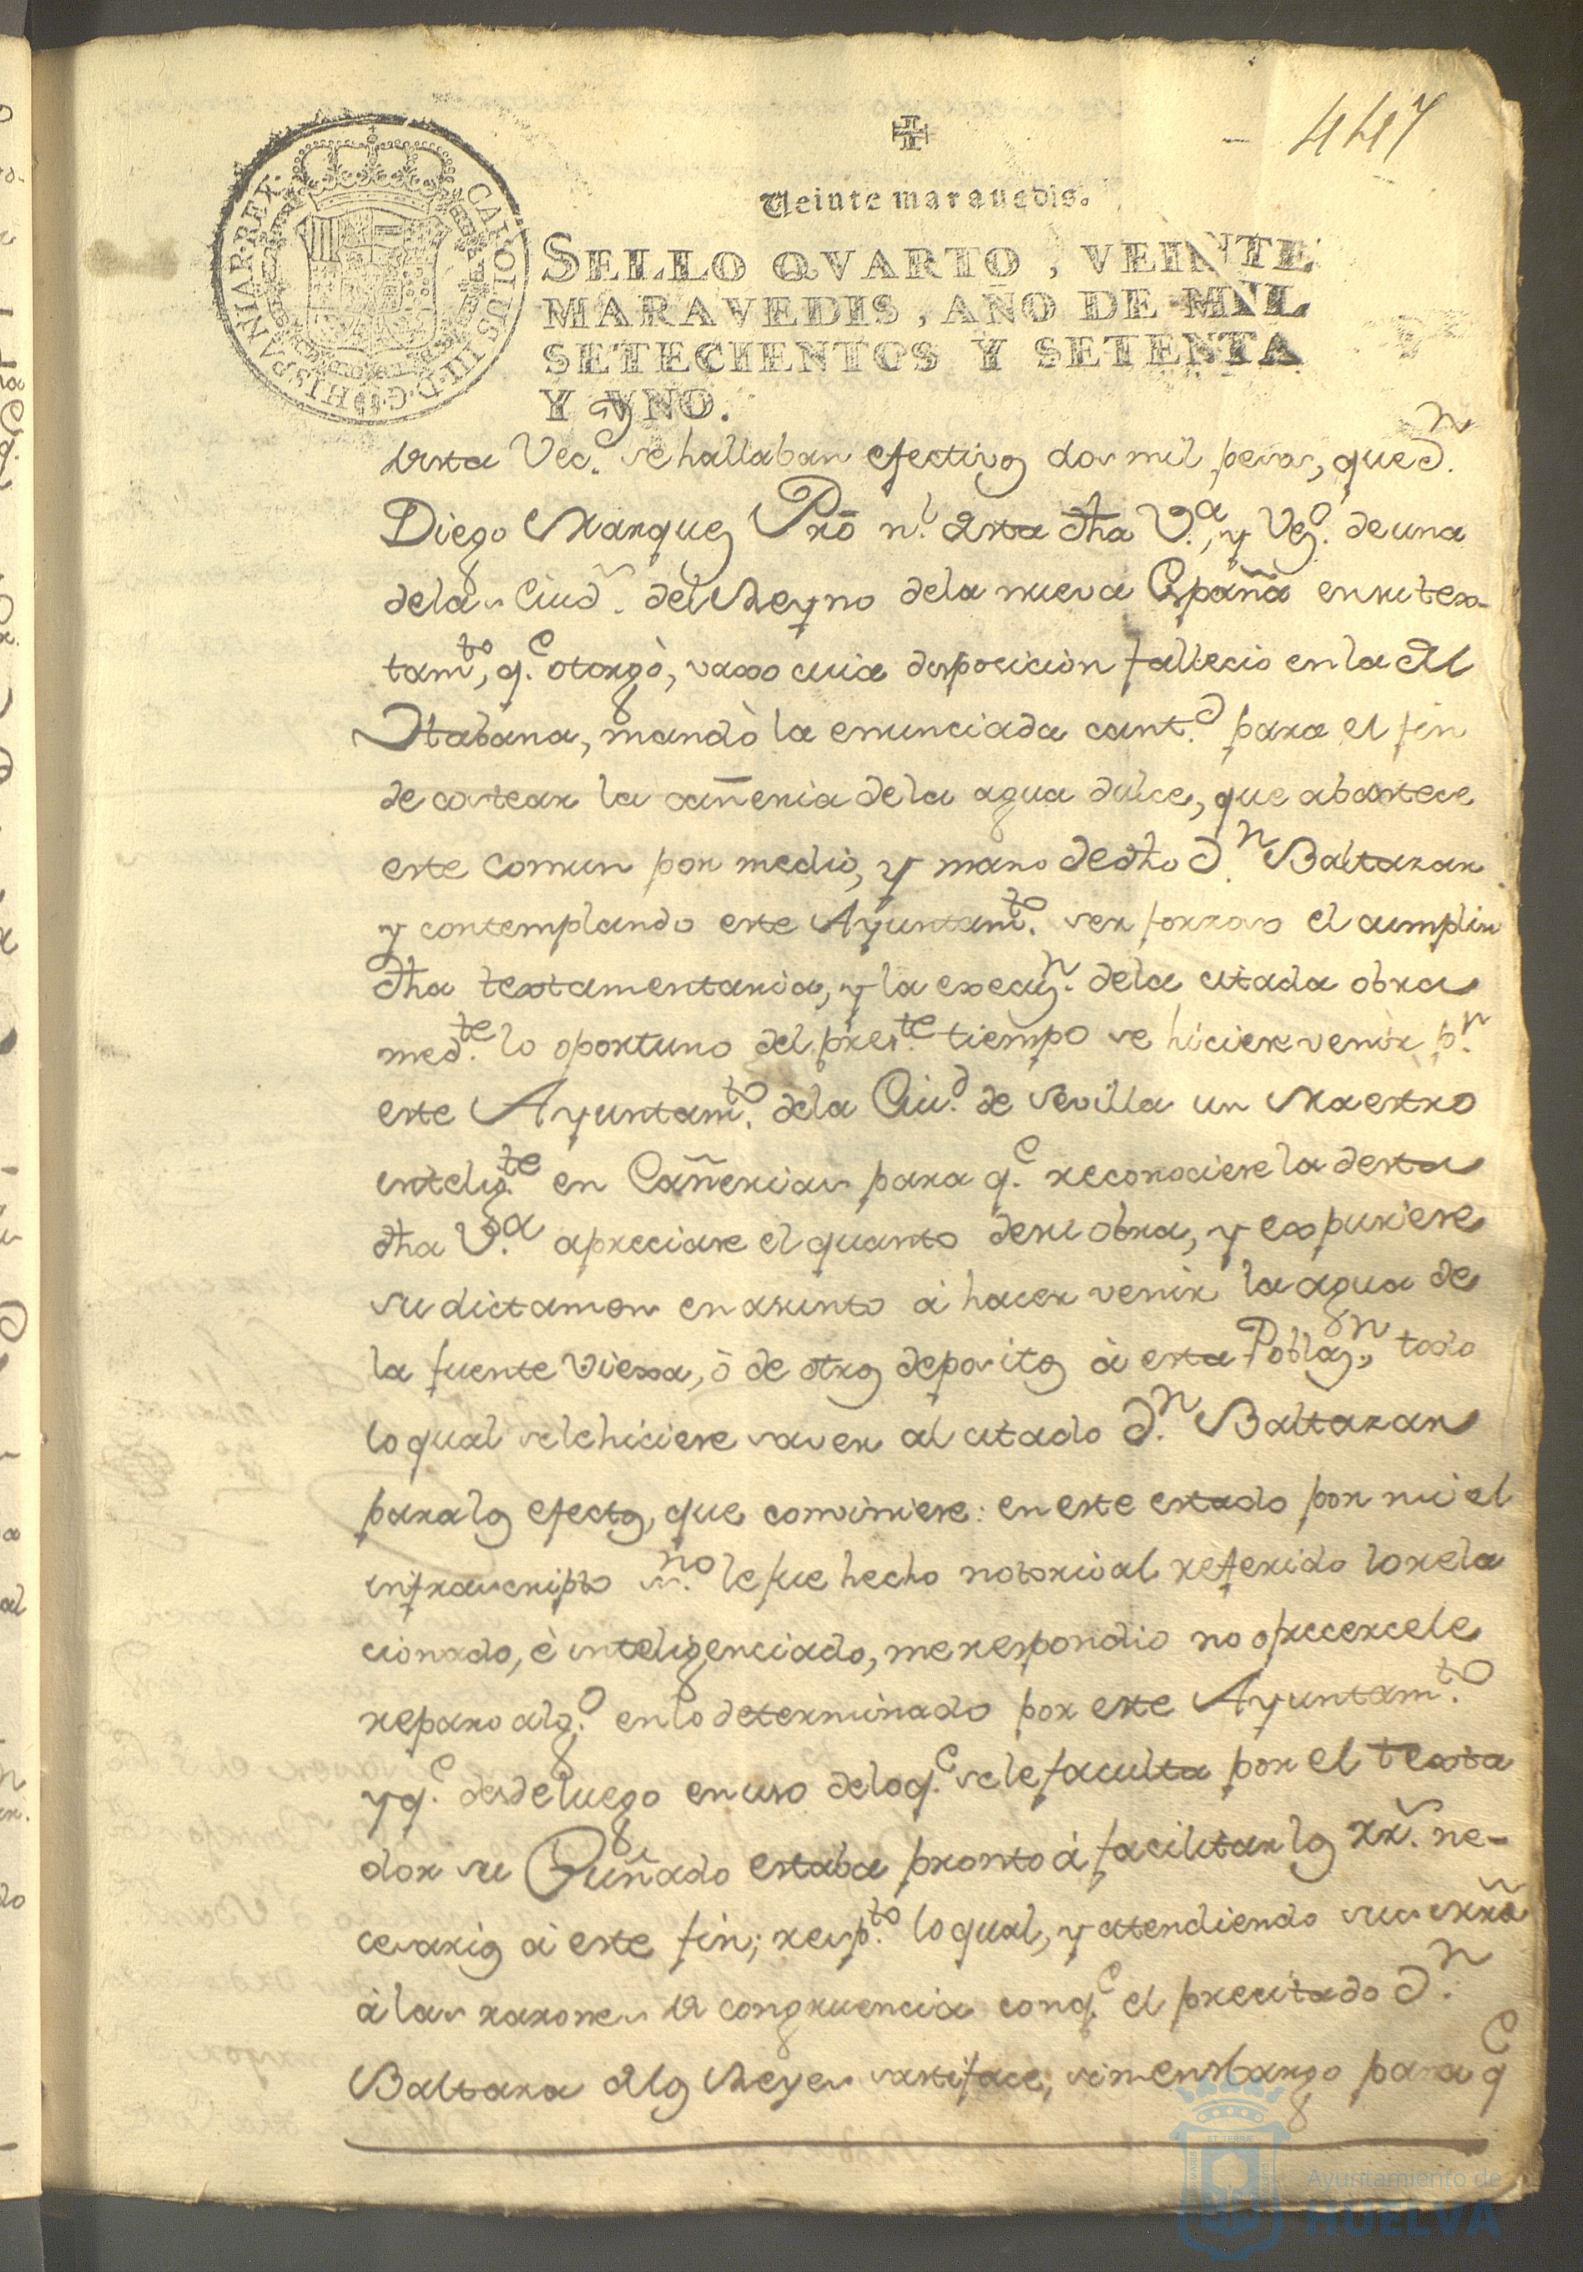 447
Veinte marauedis.
CAROLUS III D. G. HISPANIAR. REX.
SELLO QVARTO, VEINTE
MARAVEDIS, AÑO DE MIL
SETECIENTOS Y SETENTA
Y VNO.
desta Vec. se hallaban efectivos dos mil pesos, que Dn.
Diego Marquez Pro nl. desta dha Va., y Vezo. de una
delas Ciuds. del Reyno dela nueva España en su tex-
tamto, qe. otorgò, vaxo cuia disposicion fallecio en la dela
Habana, mandò la enunciada cantd. para el fin
de costear la cañeria dela agua dulce, que abastece
este comun por medio, y mano de dho Dn. Baltazar
y contemplando este Ayuntamto. ser forzoso el cumplir
dha textamentaria, y la execuzn. dela citada obra
medte. lo oportuno del preste. tiempo se hiciese venir pr.
este Ayuntamto. dela Ciud. de Sevilla un Maestro
inteligte. en Cañerias para qe. reconociese la desta
dha Va. apreciase el quanto de su obra, y expusiese
su dictamen en asunto à hacer venir la agua de
la fuente viexa, ò de otros depositos à esta Poblazn., todo
lo qual se le hiciese saver al citado Dn. Baltazar
para los efectos, que combiniese: en este estado por mi el
infrascripto sno. le fue hecho notorio al referido lo rela
cionado, è inteligenciado, me respondio no ofrecercele
reparo algo. en lo determinado por este Ayuntamto.
y qe. desde luego en uso de lo qe. se le faculta por el texta
dor su Cuñado estaba pronto à facilitar los rrs. ne-
cesarios à este fin; respto. lo qual, y atendiendo sus mrds
à las razones de congruencia con qe. el precitado Dn.
Baltaza delos Reyes satisface, sin embargo para qe
Ayuntamiento de
HUELVA